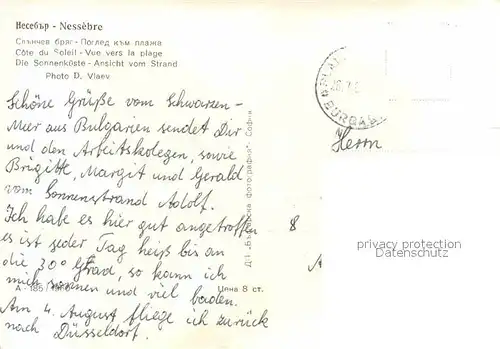 Несебър - Nessèbre
Слънчев бряг - Поглед към плажа
Côte du Soleil - Vue vers la plage
Die Sonnenküste - Ansicht vom Strand
Photo D. Vlaev
BURGAS
Schöne Grüße vom Schwarzen-
Meer aus Bulgarien sendet Dir
und den Arbeitskolegen, sowie
Brigitte, Margit und Gerald
vom Sonnenstrand Adolf.
Ich habe es hier gut angetroffen
es ist jeder Tag heiß bis an
die 30° Grad, so kann ich
mich sonnen und viel baden.
Am 4. August fliege ich zurück
nach Düsseldorf.
Цена 8 ст.
ДП „Българска фотография" - София
Herrn
8
privacy protection
VDM.